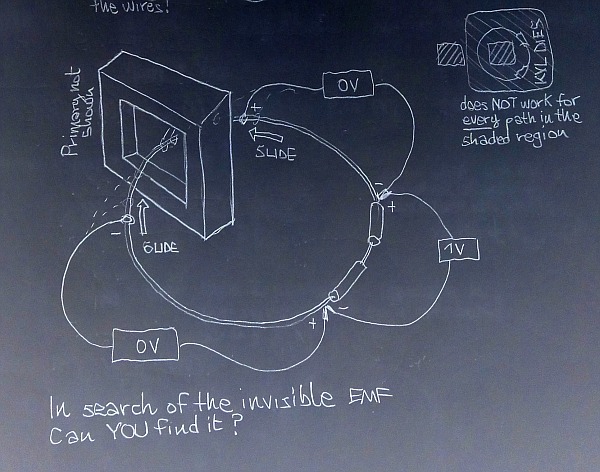 the wires!
Primary not
shown
+
0V
SLIDE
-
+
SLIDE
-
1V
+
-
0V
KVL DIES
does NOT work for
every path in the
shaded region
In search of the invisible EMF
Can YOU find it?